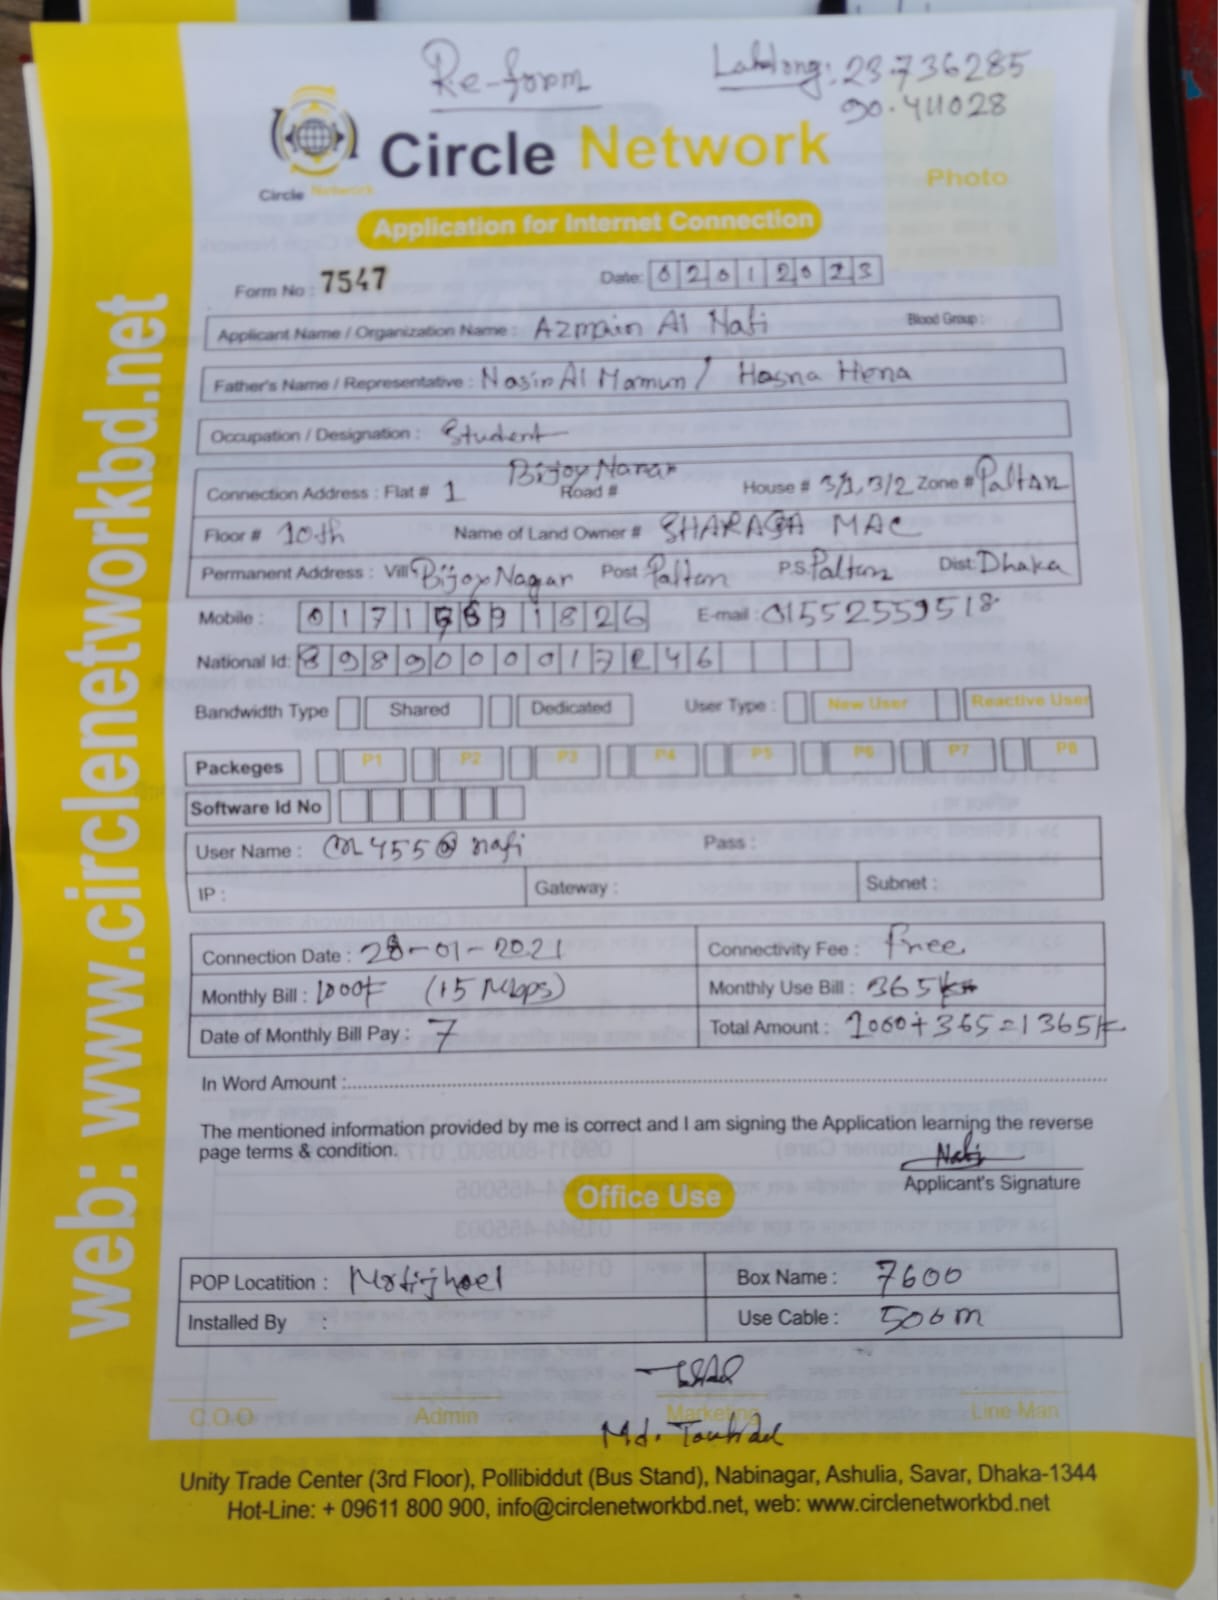 Re-form
Lat/long: 23.736285
90.411028
Circle Network
Circle Network
Photo
Application for Internet Connection
Form No : 7547
Date: 02012023
Applicant Name / Organization Name : Azmain Al Nafi Blood Group :
Father's Name / Representative : Nasir Al Mamun / Hasna Hena
Occupation / Designation : Student
Connection Address : Flat # 1 Road # Bijoy Nagar House # 3/1, 3/2 Zone # Paltan
Floor # 10th Name of Land Owner # MAC
Permanent Address : Vill Bijoy Nagar Post Paltan P.S. Paltan Dist: Dhaka
Mobile : E-mail : 01552559518
National Id:
Bandwidth Type Shared Dedicated User Type : New User Reactive User
Packeges P1 P2 P3 P4 P5 P6 P7 P8
Software Id No
User Name : Pass :
IP : Gateway : Subnet :
Connection Date : 28-01-2021 Connectivity Fee : free
Monthly Bill : (15 Mbps) Monthly Use Bill :
Date of Monthly Bill Pay : 7 Total Amount : 1000+365=1365
In Word Amount :
The mentioned information provided by me is correct and I am signing the Application learning the reverse
page terms & condition.
Nafi
Applicant's Signature
Office Use
POP Locatition : Motijheel Box Name : 7600
Installed By : Use Cable : 500m
C.O.O Admin Marketing Line Man
Md.
Unity Trade Center (3rd Floor), Pollibiddut (Bus Stand), Nabinagar, Ashulia, Savar, Dhaka-1344
Hot-Line: + 09611 800 900, info@circlenetworkbd.net, web: www.circlenetworkbd.net
web: www.circlenetworkbd.net